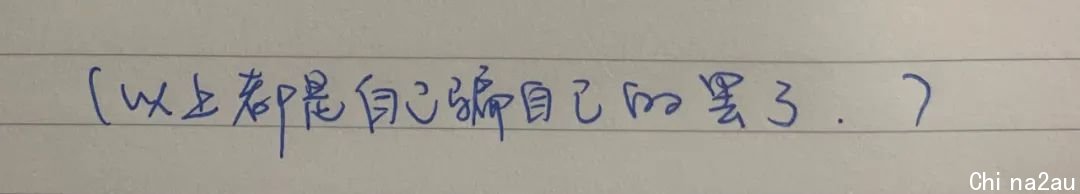 (以上都是自己骗自己的罢了.)
Chi na2au